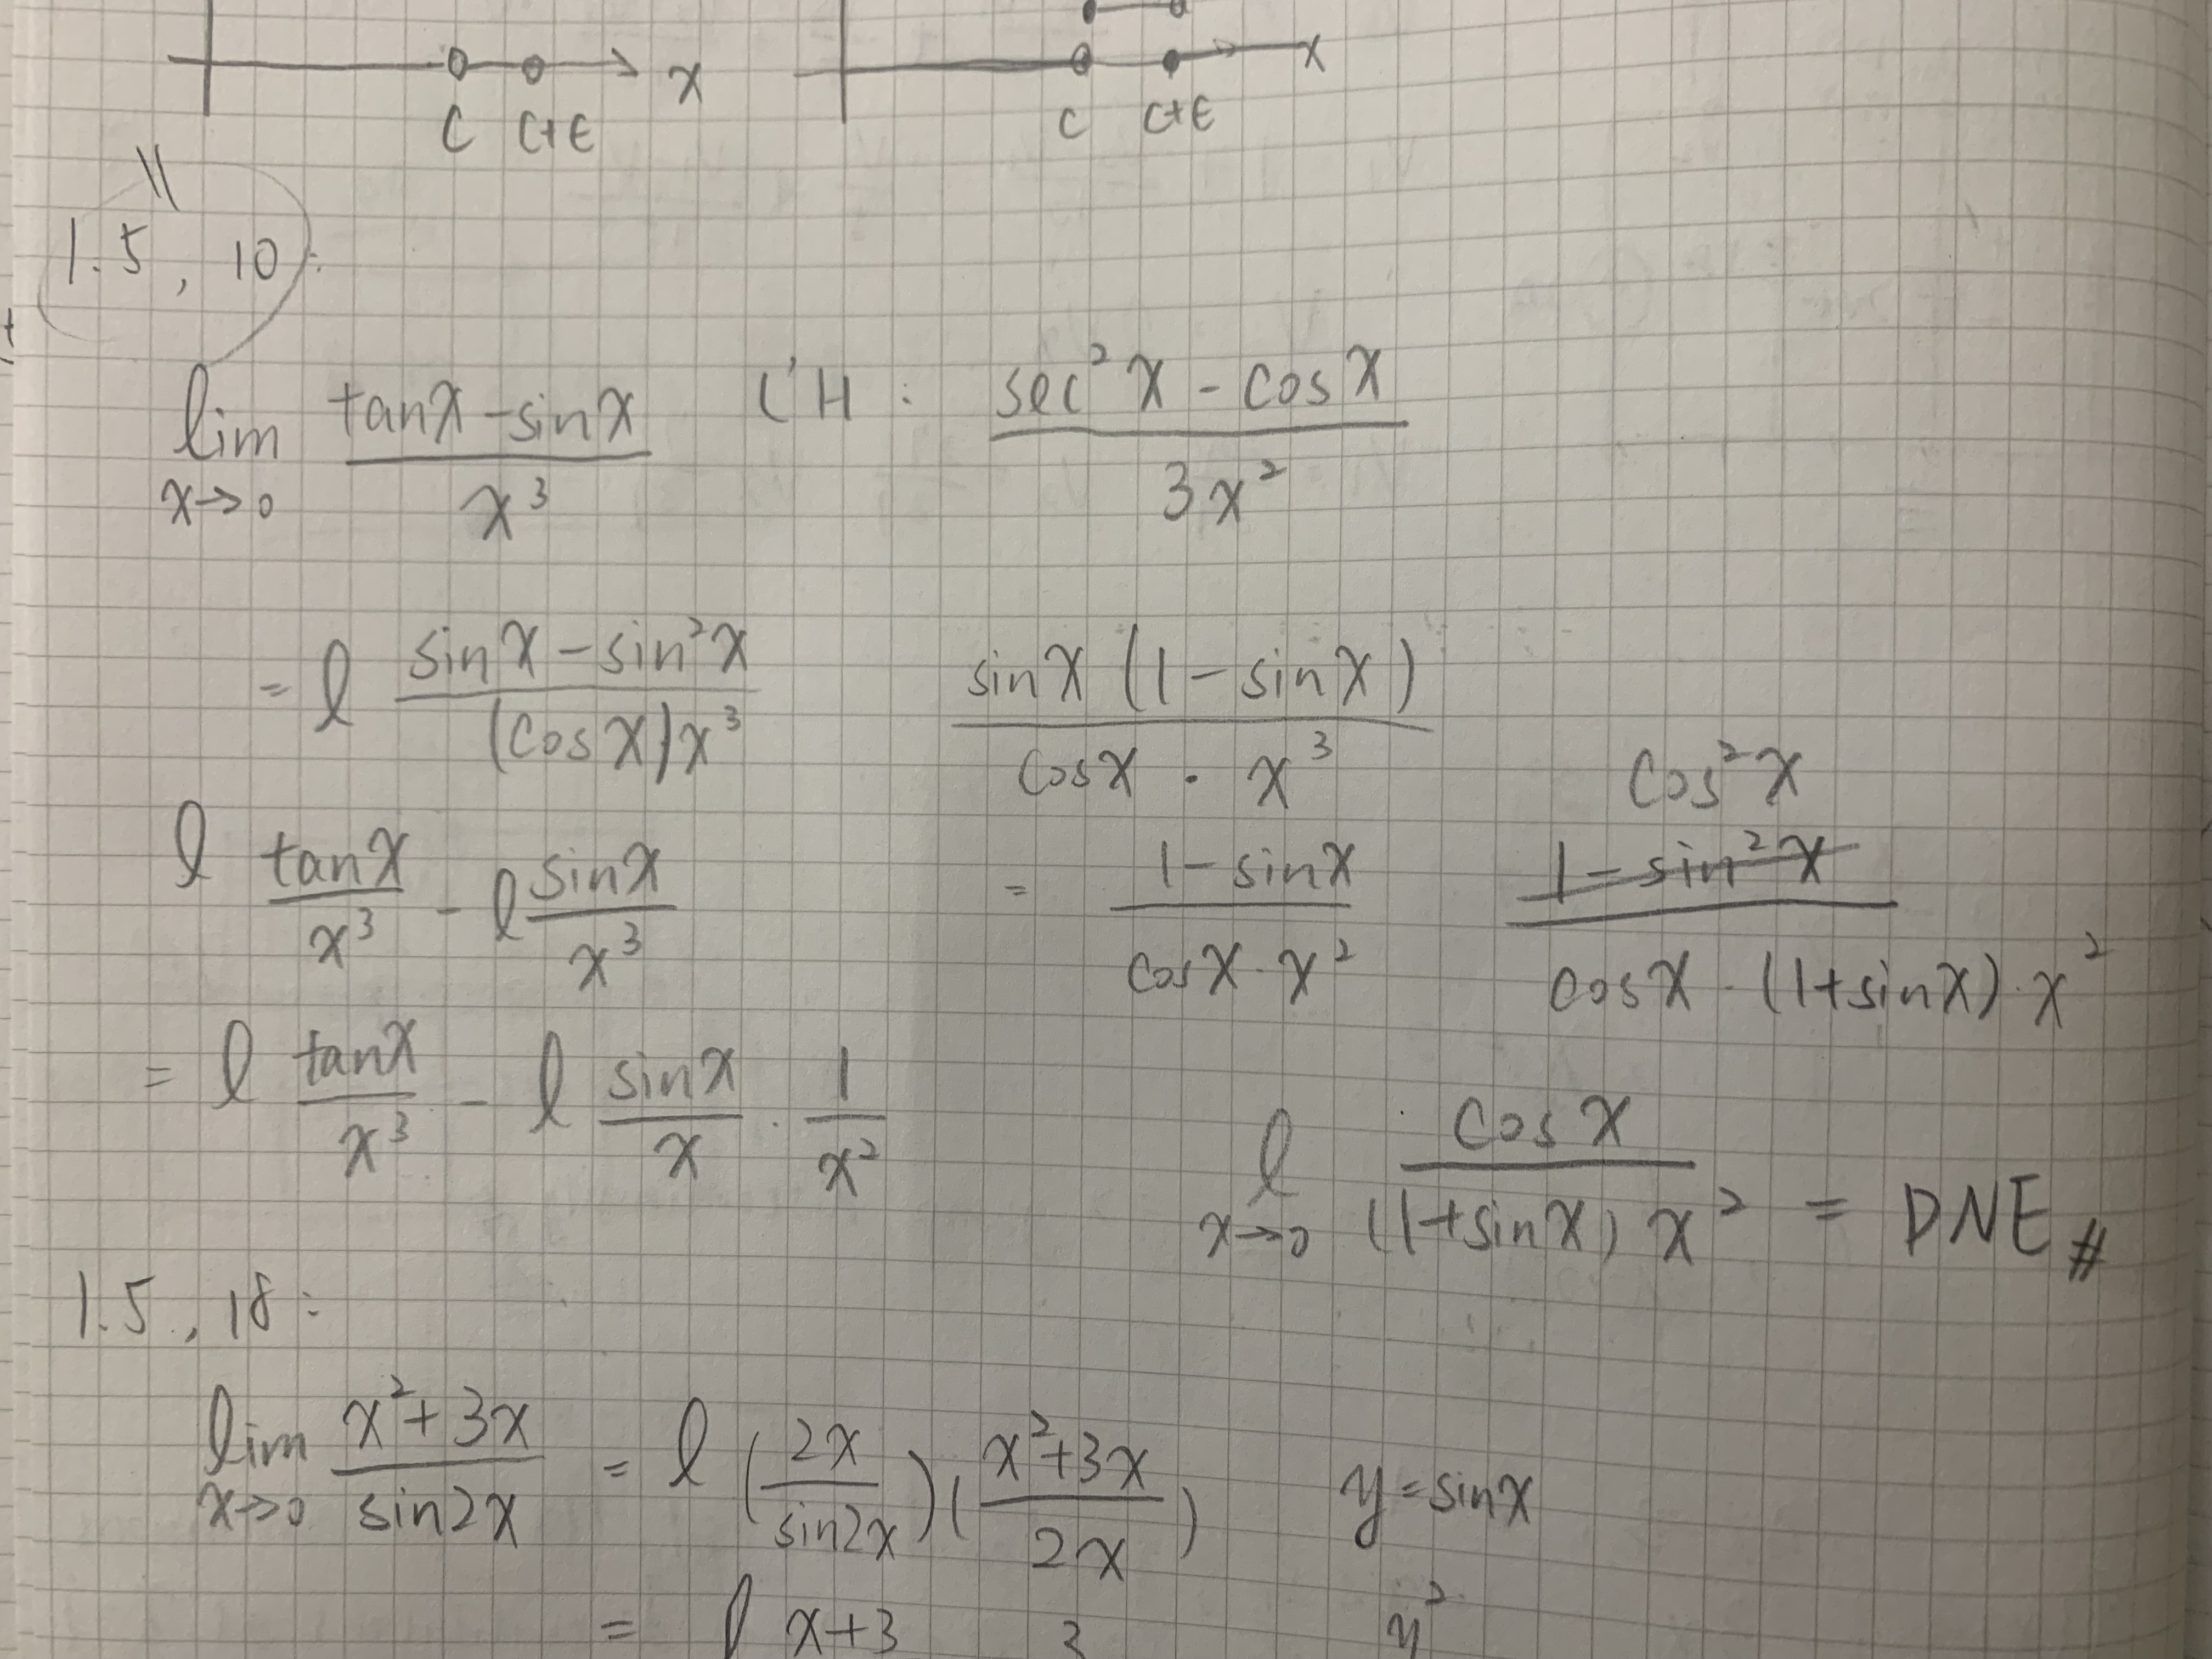 C C+ϵ x
C C+ϵ x
1.5, 10:
lim x→0 (tanx - sinx)/x³ L'H: (sec²x - cosx)/(3x²)
= l (sinx - sin²x)/((cosx)x³) (sinx(1 - sinx))/(cosx · x³)
l tanx/x³ - l sinx/x³ = (1 - sinx)/(cosx · x²) cos²x 1 - sin²x/(cosx · (1+sinx) · x²)
= l tanx/x³ - l sinx/x · 1/x² l x→0 cosx/((1+sinx) x²) = DNE #
1.5, 18:
lim x→0 (x²+3x)/sin2x = l (2x/sin2x)((x²+3x)/2x) y=sinx
= l x+3 3 y²